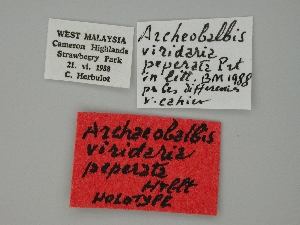 WEST MALAYSIA
Cameron Highlands
Strawberry Park
21. vi. 1988
C. Herbulot
Archeobalbis
viridaria
peperata Prt
in litt. BM 1988
pr les différences
v. cahier
Archaeobalbis
viridaria
peperata
Hrblt
HOLOTYPE